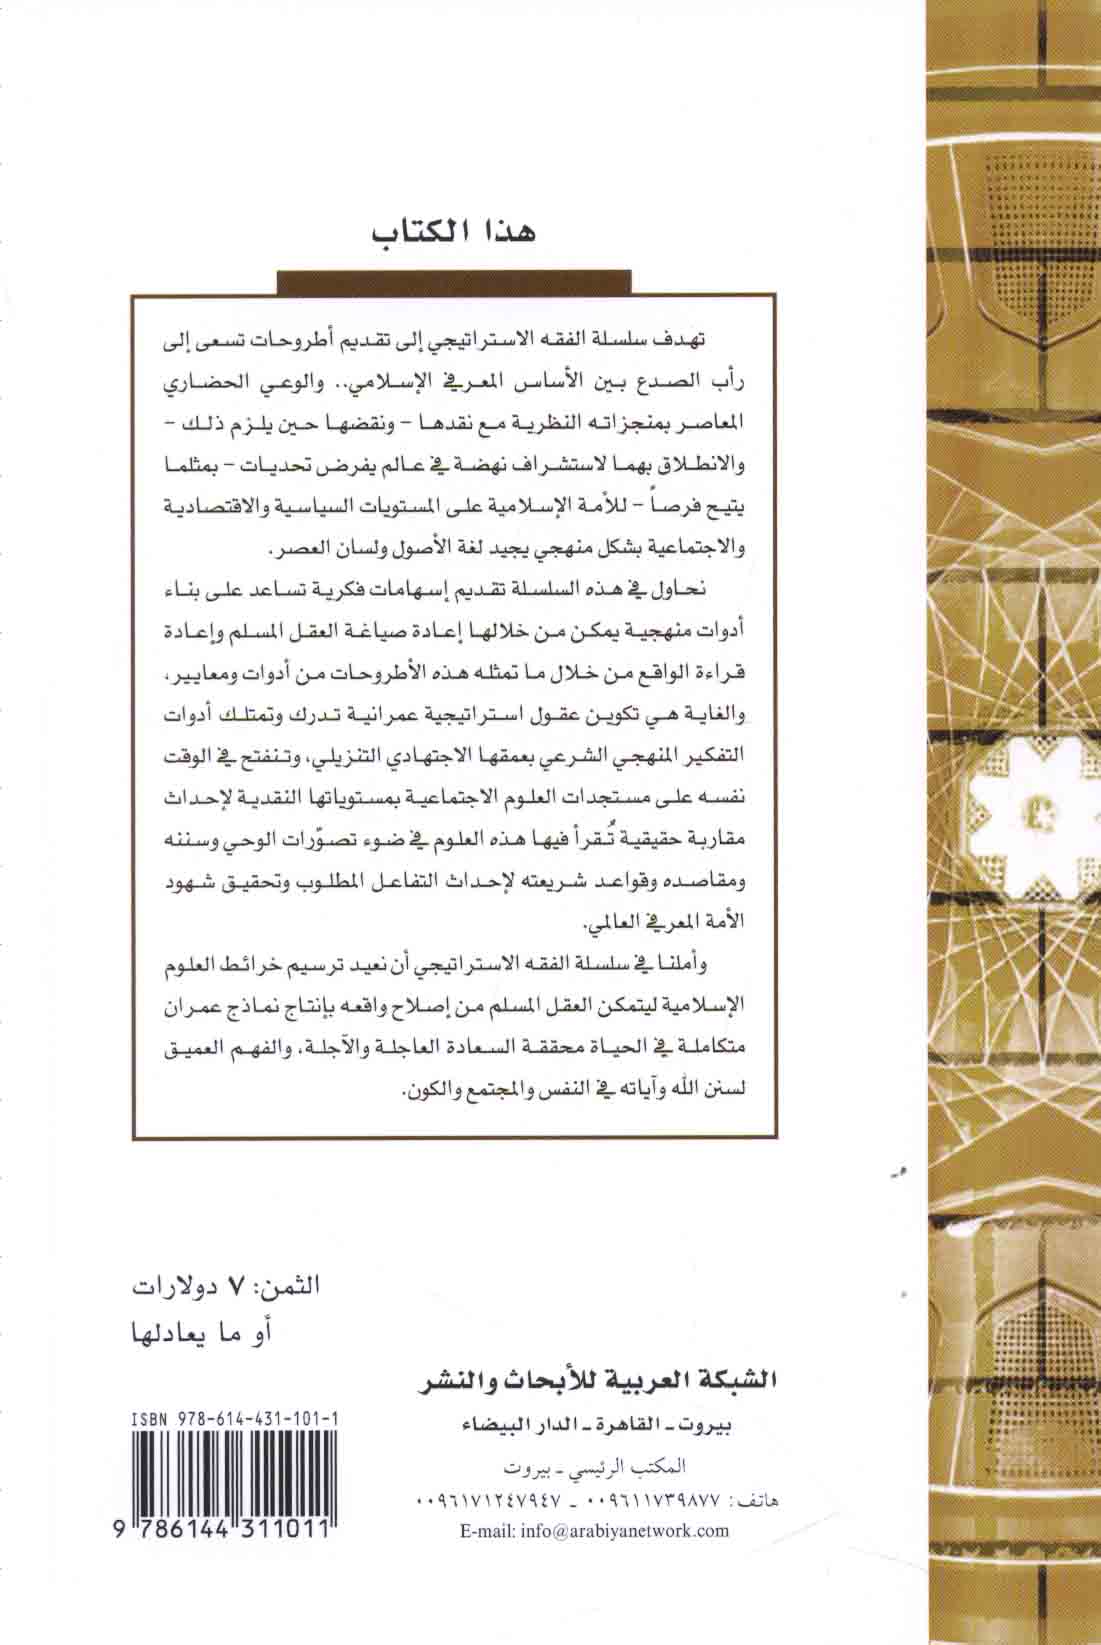 هذا الكتاب
تهدف سلسلة الفقه الاستراتيجي إلى تقديم أطروحات تسعى إلى
رأب الصدع بين الأساس المعرفي الإسلامي.. والوعي الحضاري
المعاصر بمنجزاته النظرية مع نقدها - ونقضها حين يلزم ذلك -
والانطلاق بهما لاستشراف نهضة في عالم يفرض تحديات - بمثلما
يتيح فرصاً - للأمة الإسلامية على المستويات السياسية والاقتصادية
والاجتماعية بشكل منهجي يجيد لغة الأصول ولسان العصر.
نحاول في هذه السلسلة تقديم إسهامات فكرية تساعد على بناء
أدوات منهجية يمكن من خلالها إعادة صياغة العقل المسلم وإعادة
قراءة الواقع من خلال ما تمثله هذه الأطروحات من أدوات ومعايير،
والغاية هي تكوين عقول استراتيجية عمرانية تدرك وتمتلك أدوات
التفكير المنهجي الشرعي بعمقها الاجتهادي التنزيلي، وتنفتح في الوقت
نفسه على مستجدات العلوم الاجتماعية بمستوياتها النقدية لإحداث
مقاربة حقيقية تُقرأ فيها هذه العلوم في ضوء تصوّرات الوحي وسننه
ومقاصده وقواعد شريعته لإحداث التفاعل المطلوب وتحقيق شهود
الأمة المعرفي العالمي.
وأملنا في سلسلة الفقه الاستراتيجي أن نعيد ترسيم خرائط العلوم
الإسلامية ليتمكن العقل المسلم من إصلاح واقعه بإنتاج نماذج عمران
متكاملة في الحياة محققة السعادة العاجلة والآجلة، والفهم العميق
لسنن الله وآياته في النفس والمجتمع والكون.
الثمن: ٧ دولارات
أو ما يعادلها
الشبكة العربية للأبحاث والنشر
بيروت - القاهرة - الدار البيضاء
المكتب الرئيسي - بيروت
هاتف: ٠٠٩٦١١٧٣٩٨٧٧ - ٠٠٩٦١٧١٢٤٧٩٤٧
E-mail: info@arabiyanetwork.com
ISBN 978-614-431-101-1
9 786144 311011